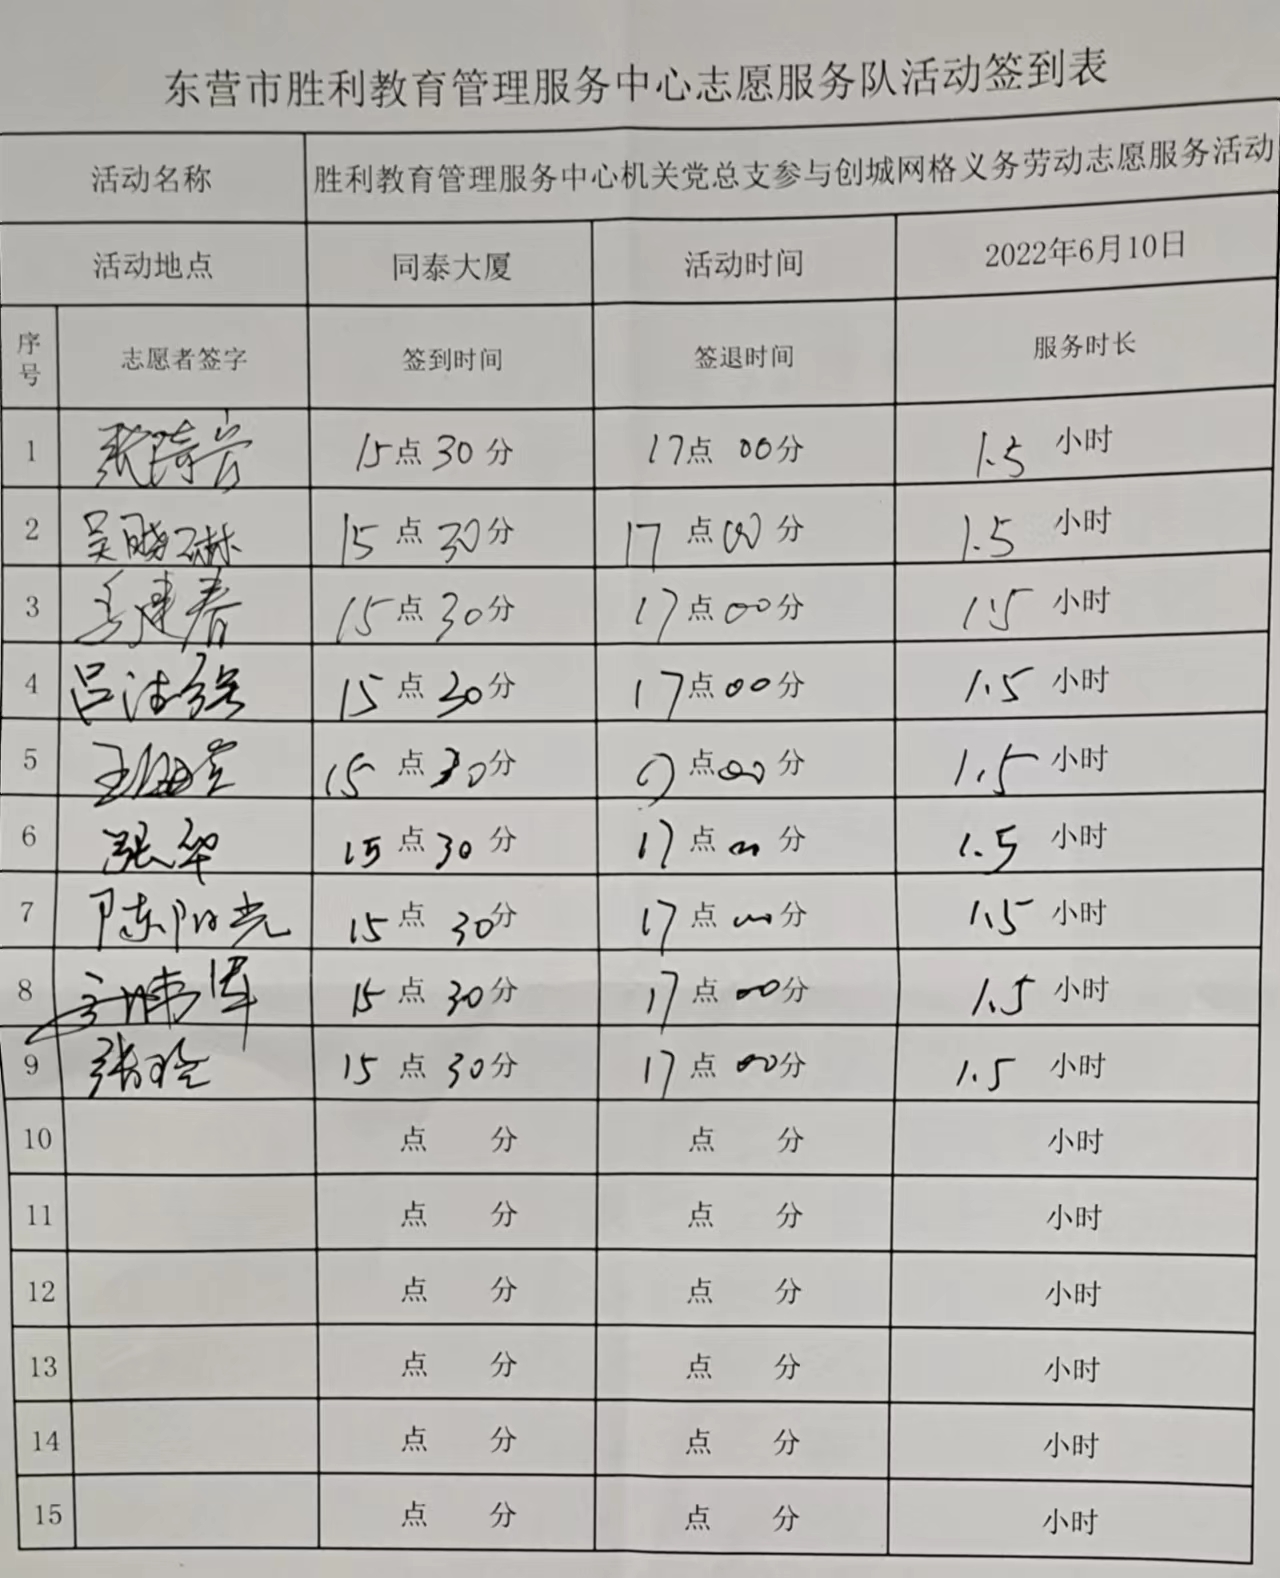 东营市胜利教育管理服务中心志愿服务队活动签到表
活动名称 胜利教育管理服务中心机关党总支参与创城网格义务劳动志愿服务活动
活动地点 同泰大厦 活动时间 2022年6月10日
序号 志愿者签字 签到时间 签退时间 服务时长
1 15点30分 17点00分 1.5小时
2 吴晓琳 15点30分 17点00分 1.5小时
3 王建春 15点30分 17点00分 1.5小时
4 吕洁 15点30分 17点00分 1.5小时
5 王 15点30分 点00分 1.5小时
6 张华 15点30分 17点00分 1.5小时
7 陈阳光 15点30分 17点00分 1.5小时
8 15点30分 17点00分 1.5小时
9 张玲 15点30分 17点00分 1.5小时
10 点 分 点 分 小时
11 点 分 点 分 小时
12 点 分 点 分 小时
13 点 分 点 分 小时
14 点 分 点 分 小时
15 点 分 点 分 小时